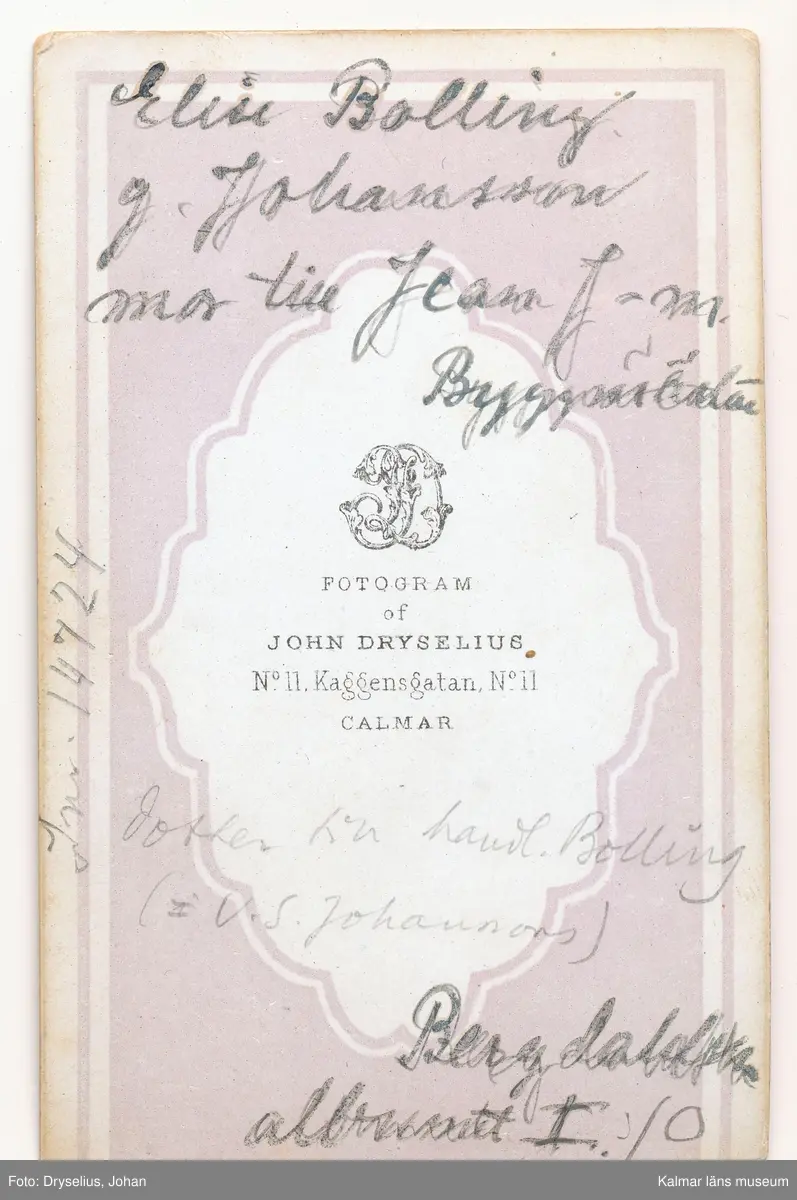 Elise Bolling.
g. Johansson
mor till Jean J-n.
JD
FOTOGRAM
of
JOHN DRYSELIUS.
No 11, Kaggensgatan, No 11
CALMAR
Inr. 14724
Dotter till handl. Bolling
(= O.S. Johanssons)
Bergdahlska
albumet I. 10
Foto: Dryselius, Johan
Kalmar läns museum